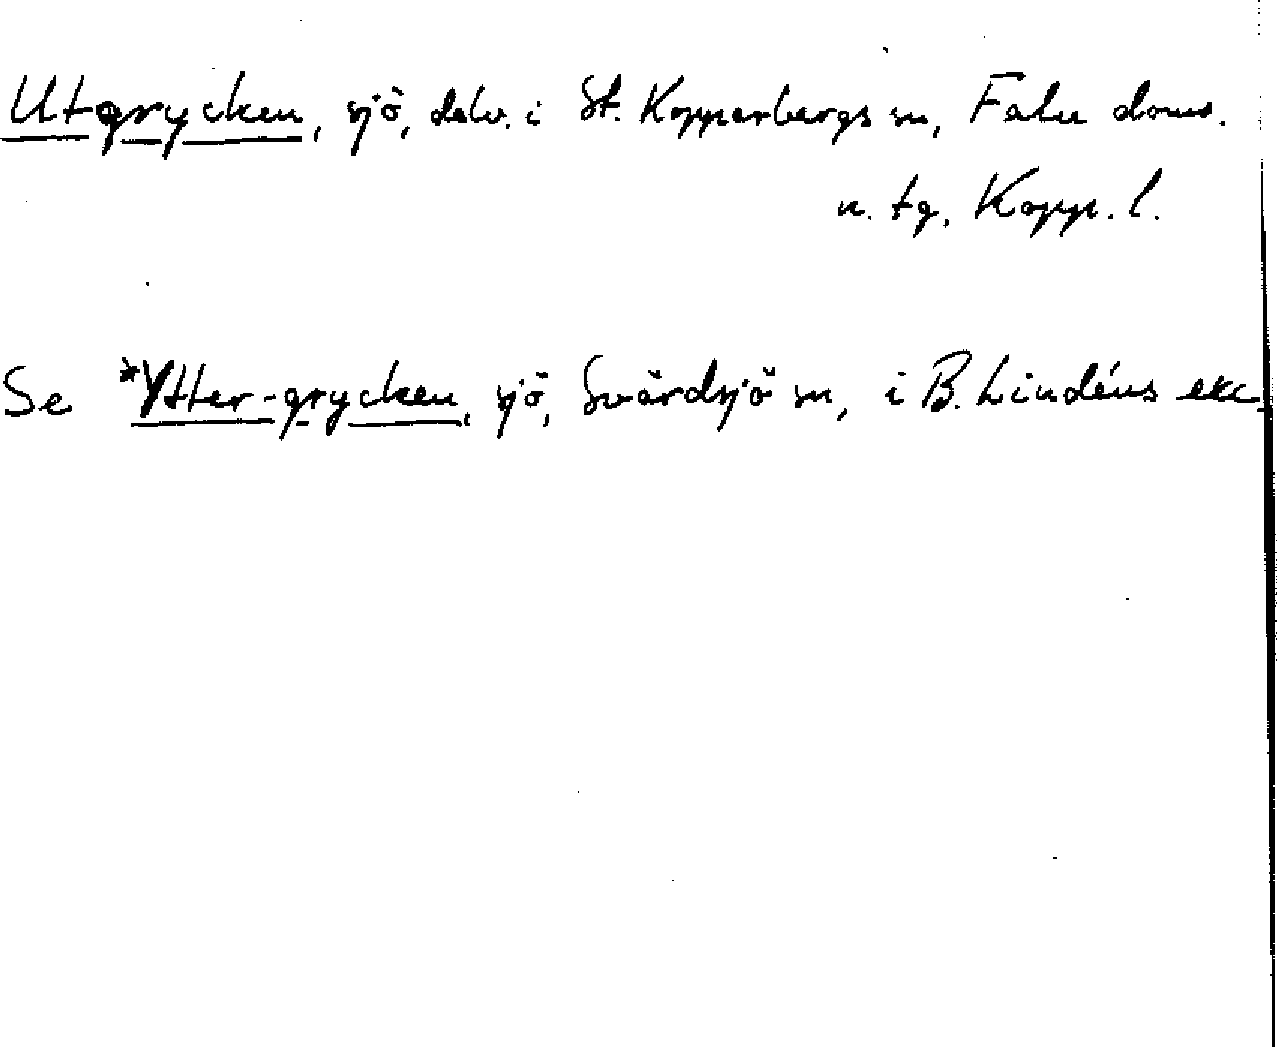 Utgrycken, sjö, delv. i St. Kopparbergs sn, Falu doms.
n. tg, Kopp. l.
Se *Ytter-grycken, sjö, Svärdsjö sn, i B. Lindéns exc.